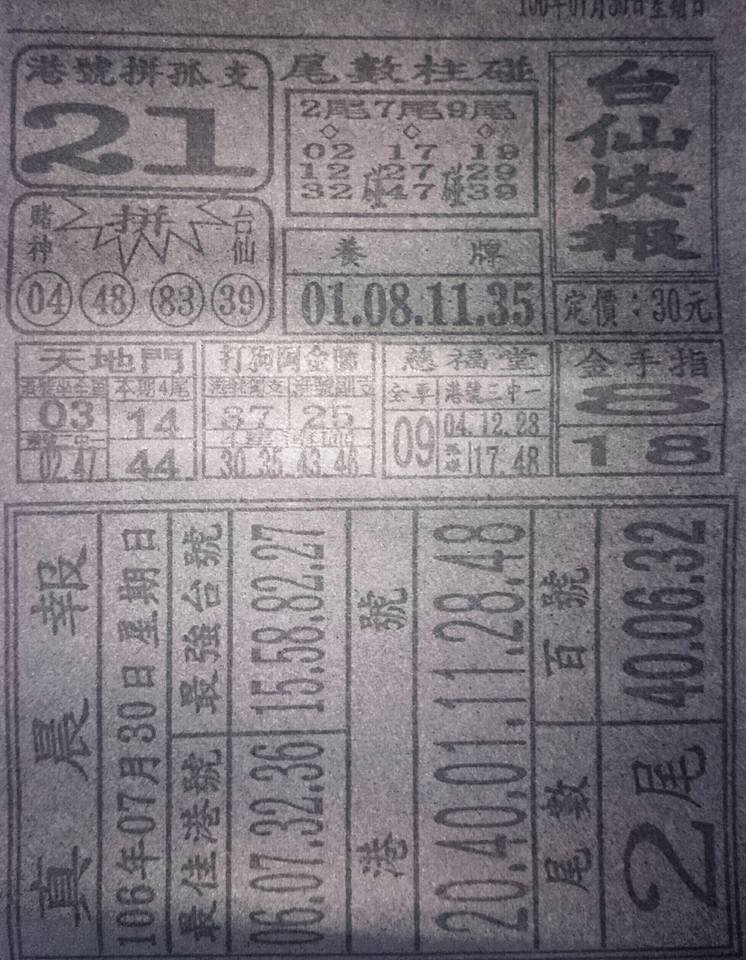 106年07月30日星期日
港號拼孤支
21
尾數柱碰
2尾7尾9尾
02 17 19
12 27 29
32碰47碰39
台仙快報
定價：30元
賭神
拼
台仙
04 48 83 39
養牌
01.08.11.35
天地門
本期4尾
03 14
02.47 44
37 25
30.35 43.46
慈福堂
全車 港號三中一
09
04.12.23
17.48
金手指
8
18
真晨報
106年07月30日星期日
最佳港號
06.07.32.36
最強台號
15.58.82.27
港號
20.40.01.11.28.48
尾數
2尾
百號
40.06.32